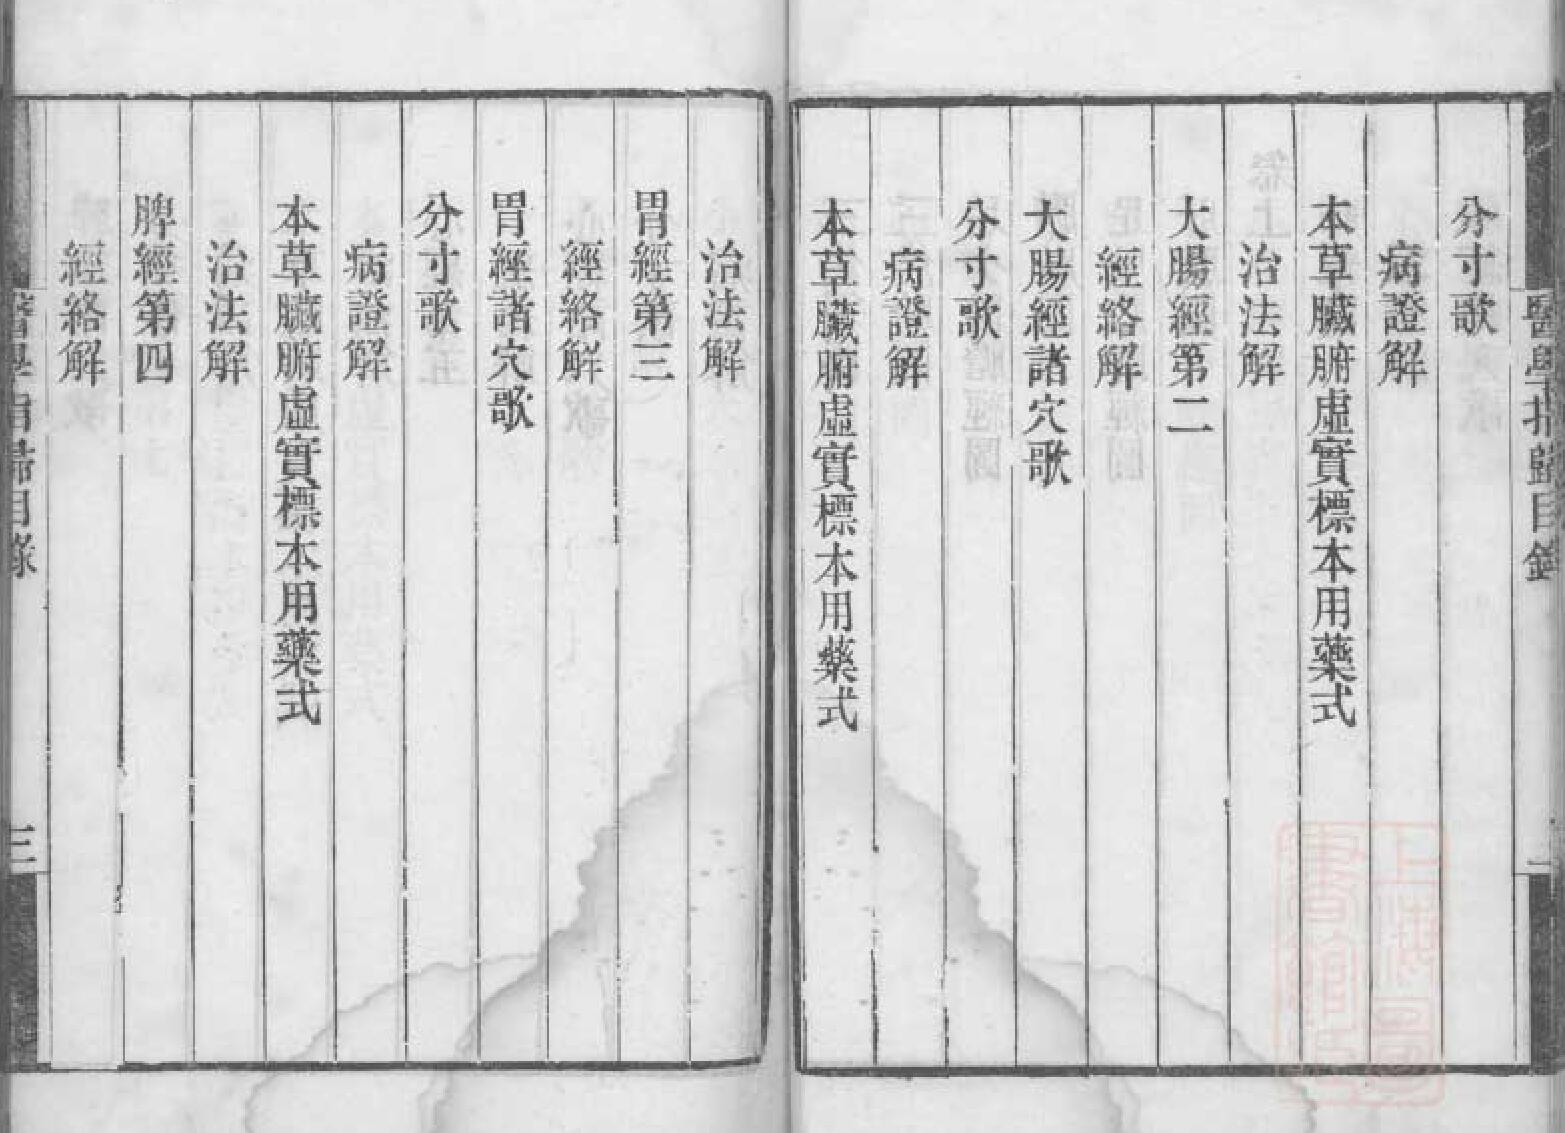 醫學指歸目錄
分寸歌
病證解
本草臟腑虛實標本用藥式
治法解
大腸經第二
經絡解
大腸經諸穴歌
分寸歌
病證解
本草臟腑虛實標本用藥式
治法解
胃經第三
經絡解
胃經諸穴歌
分寸歌
病證解
本草臟腑虛實標本用藥式
治法解
脾經第四
經絡解
醫學指歸目錄